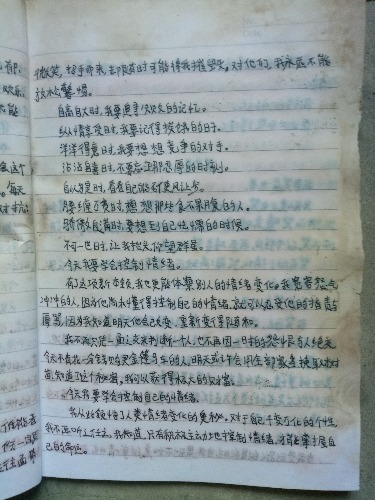 微笑，招手而来，却随时可能将我摧毁。对他们，我永远不能
放松警惕。
自高自大时，我要追寻失败的记忆。
纵情享受时，我要记得挨饿的日子。
洋洋得意时，我要想想竞争的对手。
沾沾自喜时，不要忘了那忍辱的时刻。
自以为是时，看看自己能否使风止步。
腰缠万贯时，想想那些食不果腹的人。
骄傲自满时，要想到自己怯懦的时候。
不可一世时，让我抬头，仰望群星。
今天我要学会控制情绪。
有了这项新本领，我也更能体察别人的情绪变化。我宽容怒气
冲冲的人，因为他尚未懂得控制自己的情绪，就可以忍受他的指责与
辱骂，因为我知道明天他会改变，重新变得随和。
我不再只凭一面之交来判断一个人，也不再因一时的怨恨与人绝交，
今天不肯花一分钱购买金蓬马车的人，明天也许会用全部家产换取树
苗。知道了这个秘密，我可以获得极大的财富。
今天我要学会控制自己的情绪。
我从此领悟了人类情绪变化的奥秘。对于自己千变万化的个性，
我不再听之任之，我知道，只有积极主动地控制情绪，才能掌握自
己的命运。